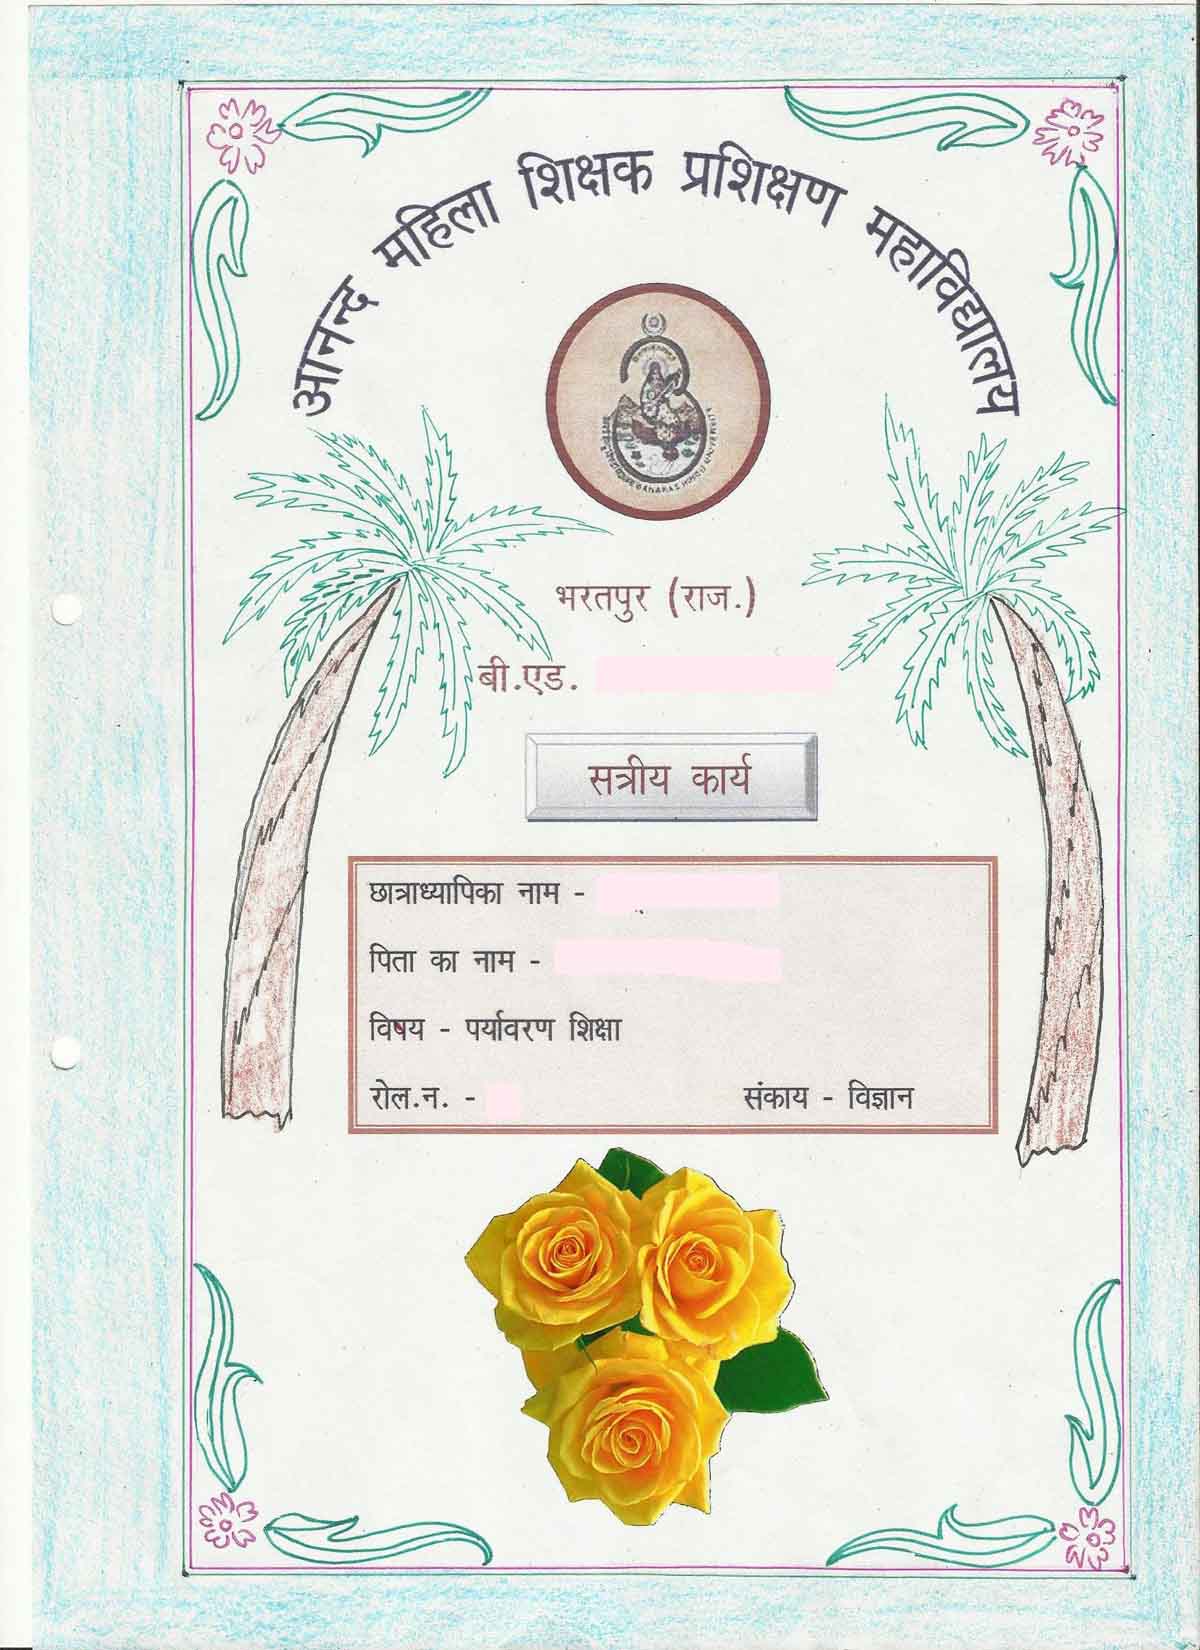 आनन्द महिला शिक्षक प्रशिक्षण महाविद्यालय
भरतपुर (राज.)
बी.एड.
सत्रीय कार्य
छात्राध्यापिका नाम -
पिता का नाम -
विषय - पर्यावरण शिक्षा
रोल.न. - संकाय - विज्ञान